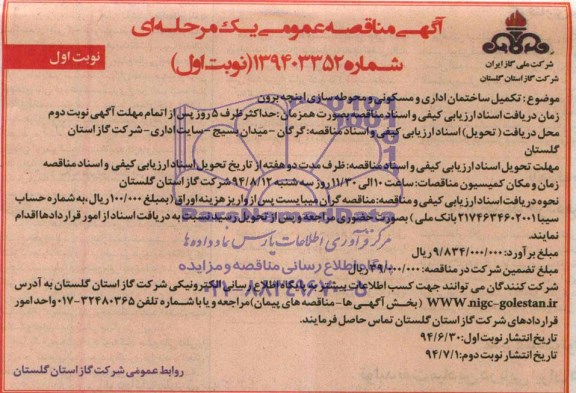 آگهی مناقصه عمومی یک مرحله‌ای
شماره ۱۳۹۴۰۳۳۵۲ (نوبت اول)
نوبت اول
شرکت ملی گاز ایران
شرکت گاز استان گلستان
موضوع: تکمیل ساختمان اداری و مسکونی و محوطه سازی اینچه برون
زمان دریافت اسناد ارزیابی کیفی و اسناد مناقصه بصورت همزمان: حداکثر ظرف ۵ روز پس از اتمام مهلت آگهی نوبت دوم
محل دریافت (تحویل) اسناد ارزیابی کیفی و اسناد مناقصه: گرگان - میدان بسیج - سایت اداری - شرکت گاز استان
گلستان
مهلت تحویل اسناد ارزیابی کیفی و اسناد مناقصه: ظرف مدت دو هفته از تاریخ تحویل اسناد ارزیابی کیفی و اسناد مناقصه
زمان و مکان کمیسیون مناقصات: ساعت ۱۰ الی ۱۱/۳۰ روز سه شنبه ۹۴/۸/۱۲ شرکت گاز استان گلستان
نحوه دریافت اسناد ارزیابی کیفی و اسناد مناقصه: مناقصه گران میبایست پس از واریز هزینه اوراق (بمبلغ ۱۰۰/۰۰۰ ریال به شماره حساب
سیبا ۲۱۷۴۶۳۴۶۰۲۰۰۱ بانک ملی) بصورت حضوری مراجعه و پس از تحویل رسید نسبت به دریافت اسناد از امور قراردادها اقدام
نمایند.
مبلغ برآورد: ۹/۸۳۴/۰۰۰/۰۰۰ ریال
مبلغ تضمین شرکت در مناقصه: ۳۹۰/۰۰۰/۰۰۰ ریال
شرکت کنندگان می توانند جهت کسب اطلاعات بیشتر به پایگاه اطلاع رسانی الکترونیکی شرکت گاز استان گلستان به آدرس
WWW.nigc-golestan.ir (بخش آگهی ها - مناقصه های پیمان) مراجعه و یا با شماره تلفن ۳۲۴۸۰۳۶۵-۰۱۷ واحد امور
قراردادهای شرکت گاز استان گلستان تماس حاصل فرمایند.
تاریخ انتشار نوبت اول: ۹۴/۶/۳۰
تاریخ انتشار نوبت دوم: ۹۴/۷/۱
روابط عمومی شرکت گاز استان گلستان
مرکز فرآوری اطلاعات پارس نماد داده ها
پایگاه اطلاع رسانی مناقصه و مزایده